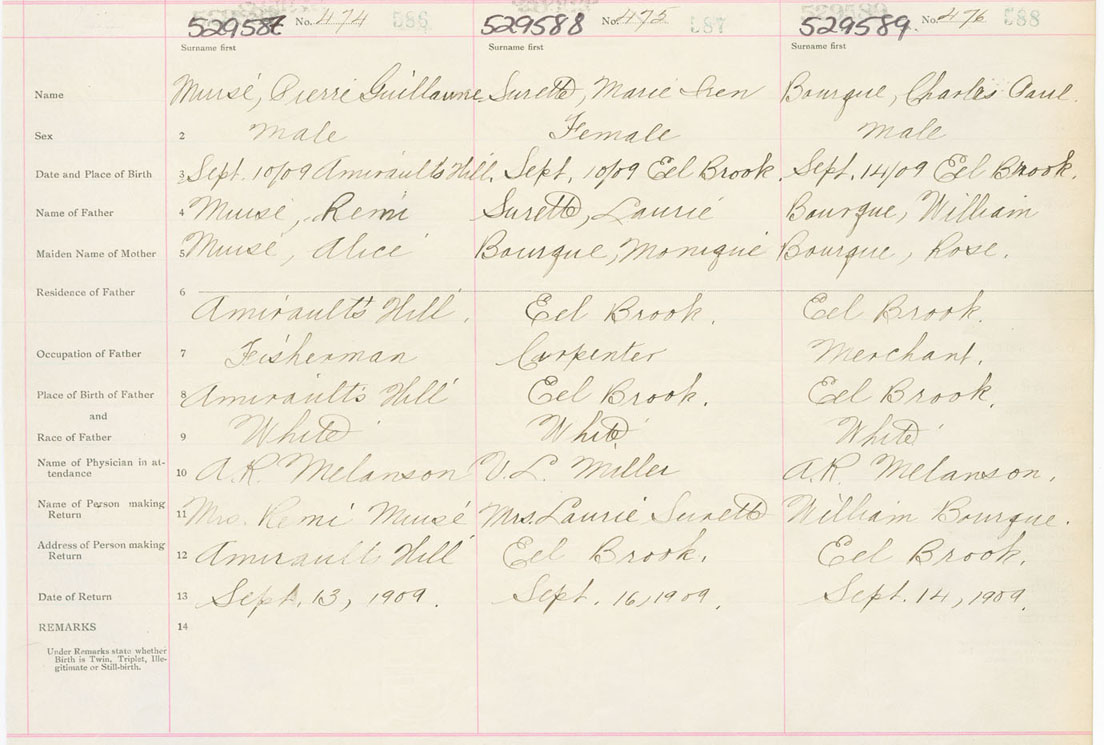 No. 474 586 529588 No. 475 587 529589 No. 476 588
Surname first Surname first Surname first
Name Muisé, Pierre Guillaume Surette, Marie Iren Bourque, Charles Paul.
Sex 2 Male Female Male
Date and Place of Birth 3 Sept. 10/09 Amiraults Hill. Sept. 10/09 Eel Brook. Sept. 14/09 Eel Brook.
Name of Father 4 Muisé, Remi Surette, Laurie Bourque, William
Maiden Name of Mother 5 Muisé, Alice Bourque, Monique Bourque, Rose.
Residence of Father 6
Amiraults Hill. Eel Brook. Eel Brook.
Occupation of Father 7 Fisherman Carpenter Merchant.
Place of Birth of Father 8 Amiraults Hill Eel Brook. Eel Brook.
and
Race of Father 9 White White White
Name of Physician in at-
tendance 10 A.R. Melanson V.L. Miller A.R. Melanson.
Name of Person making
Return 11 Mrs. Remi Muisé Mrs. Laurie Surette William Bourque.
Address of Person making
Return 12 Amiraults Hill Eel Brook. Eel Brook.
Date of Return 13 Sept. 13, 1909. Sept. 16, 1909. Sept. 14, 1909.
REMARKS 14
Under Remarks state whether
Birth is Twin, Triplet, Ille-
gitimate or Still-birth.